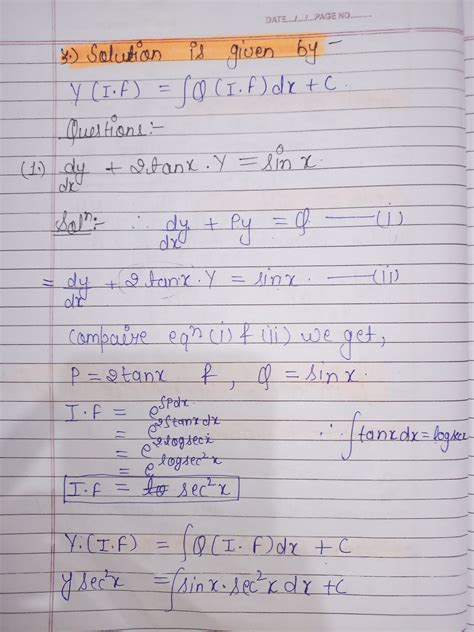 DATE.../.../...PAGE NO.........
3.) Solution is given by -
Y (I.f) = ∫Q (I.f) dx + C.
Questions:-
(1.) dy/dx + 2tanx.Y = sinx.
Solⁿ:- ∴ dy/dx + Py = Q —(i)
= dy/dx + 2tanx.Y = sinx. —(ii)
Compaire eqⁿ (i) & (ii) we get,
P = 2tanx &, Q = sinx.
I.f = e^∫Pdx
= e^2∫tanx dx ∵ ∫tanxdx = logsecx
= e^2logsecx
= e^logsec²x
I.f = sec²x
Y.(I.f) = ∫Q(I.f)dx + C
y sec²x = ∫sinx.sec²x dx + C